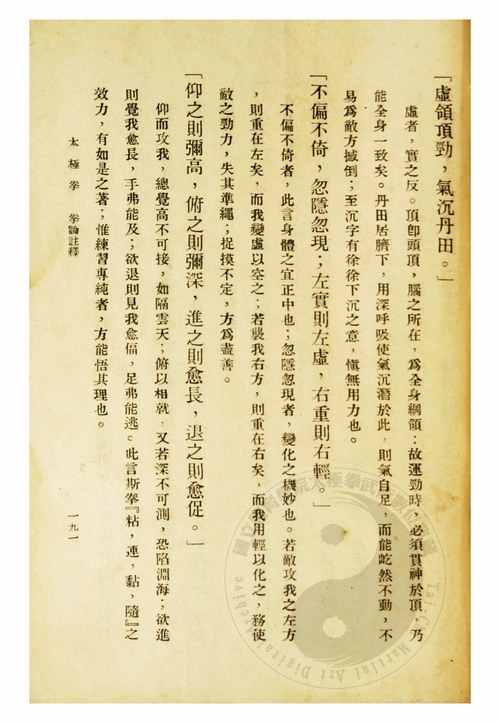 「虛領頂勁，氣沉丹田。」
虛者，實之反。頂卽頭頂，腦之所在，爲全身綱領；故運勁時，必須貫神於頂，乃
能全身一致矣。丹田居臍下，用深呼吸使氣沉潛於此，則氣自足，而能屹然不動，不
易爲敵方撼倒；至沉字有徐徐下沉之意，愼無用力也。
「不偏不倚，忽隱忽現；左實則左虛，右重則右輕。」
不偏不倚者，此言身體之宜正中也；忽隱忽現者，變化之機妙也。若敵攻我之左方
，則重在左矣，而我變虛以空之；若襲我右方，則重在右矣，而我用輕以化之，務使
敵之勁力，失其準繩；捉摸不定，方爲盡善。
「仰之則彌高，俯之則彌深，進之則愈長，退之則愈促。」
仰而攻我，總覺高不可接，如隔雲天；俯以相就，又若深不可測，恐陷淵海；欲進
則覺我愈長，手弗能及；欲退則見我愈偪，足弗能逃。此言斯拳『粘，連，黏，隨』之
效力，有如是之著；惟練習專純者，方能悟其理也。
太極拳　拳論註釋
一九一
Tai-Chi Martial Art Digital Archive